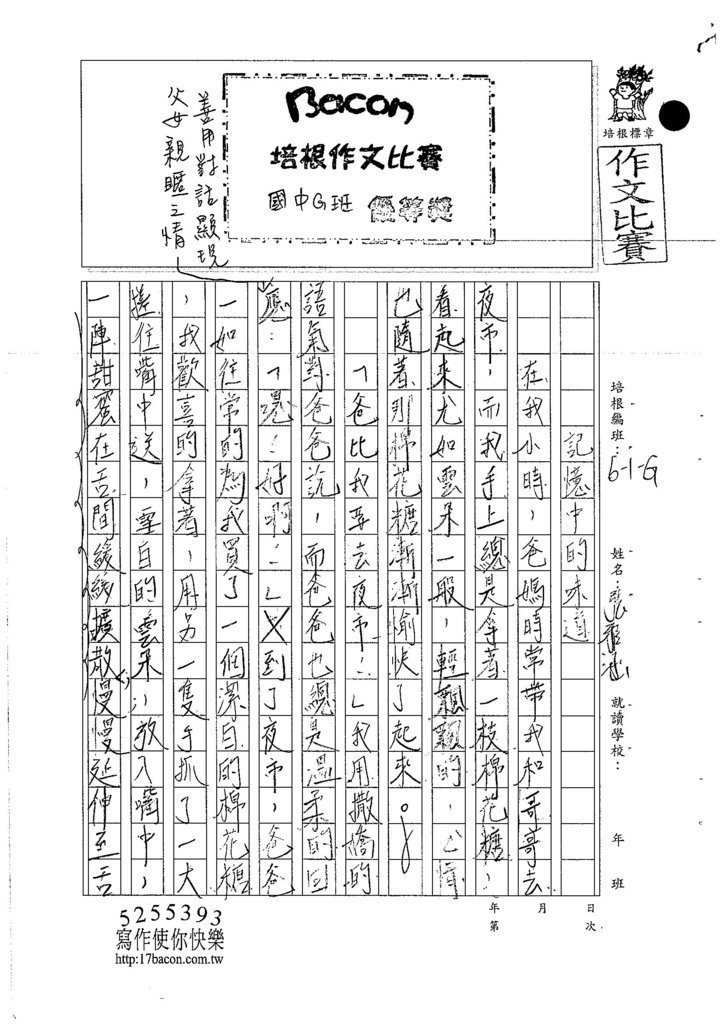 培根標章
作文比賽
Bacon
培根作文比賽
國中G班 優等獎
善用對話顯現
父女親暱之情
培根編班：6-1-G
姓名：
就讀學校：
年 班
記憶中的味道
在我小時，爸媽時常帶我和哥哥去
夜市，而我手上總是拿著一枝棉花糖，
看起來尤如雲朵一般，輕飄飄的，心情
也隨着那棉花糖漸漸愉快了起來。
「爸比我要去夜市！」我用撒嬌的
語氣對爸爸說，而爸爸也總是溫柔的回
應：「嗯！好啊！」到了夜市，爸爸
一如往常的為我買了一個潔白的棉花糖
，我歡喜的拿著，用另一隻手抓了一大
搓往嘴中送，雪白的雲朵，放入嘴中，
一陣甜蜜在舌間緩緩擴散，慢慢延伸至舌
日 月 年
次 第
5255393
寫作使你快樂
http:17bacon.com.tw